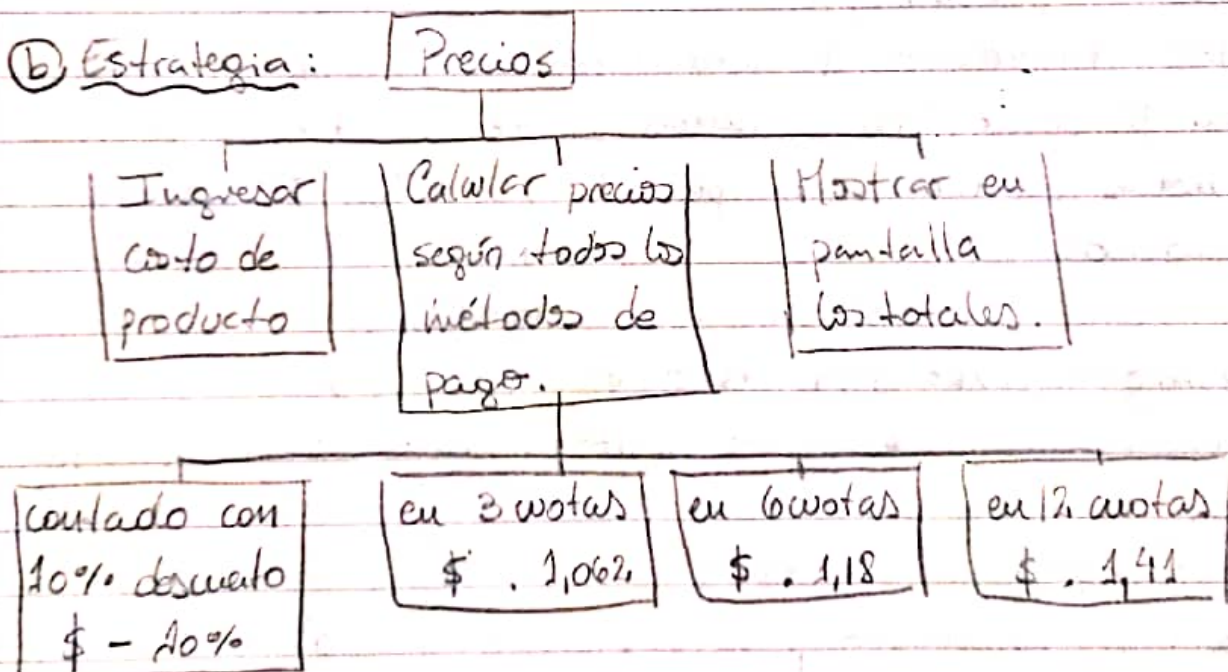 b Estrategia: Precios
Ingresar
costo de
producto
Calcular precios
según todos los
métodos de
pago.
Mostrar en
pantalla
los totales.
contado con
10% descuento
$ - 10%
en 3 cuotas
$ . 1,062
en 6 cuotas
$ . 1,18
en 12 cuotas
$ . 1,41